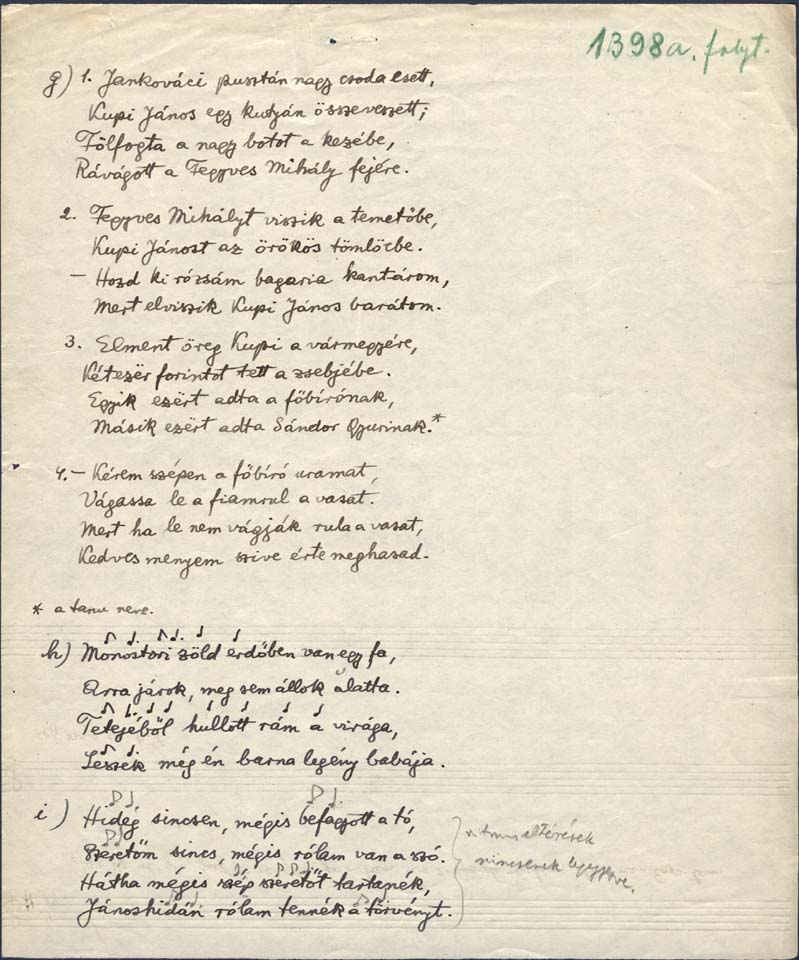 1398a. folyt.
g) 1. Jankováci pusztán nagy csoda esett,
Kupi János egy kutyán összeveszett;
Fölfogta a nagy botot a kezébe,
Rávágott a Fegyves Mihály fejére.
2. Fegyves Mihályt viszik a temetőbe,
Kupi Jánost az örökös tömlöcbe.
– Hozd ki rózsám bagaria kantárom,
Mert elviszik Kupi János barátom.
3. Elment öreg Kupi a vármegyére,
Kétezër forintot tett a zsebjébe.
Egyik ezërt adta a főbírónak,
Másik ezërt adta Sándor Gyurinak.*
4. – Kérem szépen a főbíró uramat,
Vágassa le a fiamrul a vasat.
Mert ha le nem vágják rula a vasat,
Kedves menyem szive érte meghasad.
* a tanu neve.
h) Monostori zöld erdőben van egy fa,
Arra járok, meg sem állok alatta.
Tetejéből hullott rám a virága,
Leszek még én barna legény babája.
i) Hideg sincsen, mégis befagyott a tó,
Szeretőm sincs, mégis rólam van a szó.
Hátha mégis szép szeretőt tartanék,
Jánoshidán rólam tennék a törvényt.
ritmus eltérések
nincsenek